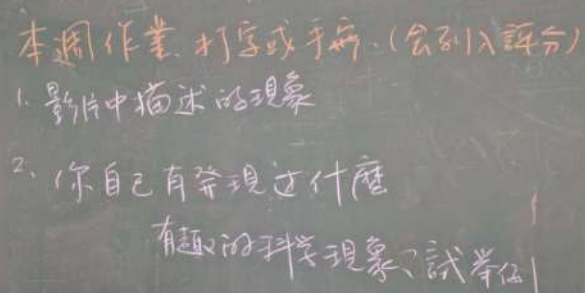 本週作業、打字或手寫、(会列入評分)
1. 影片中描述的現象
2、你自己有發現过什麼
有趣的科学現象?試举例